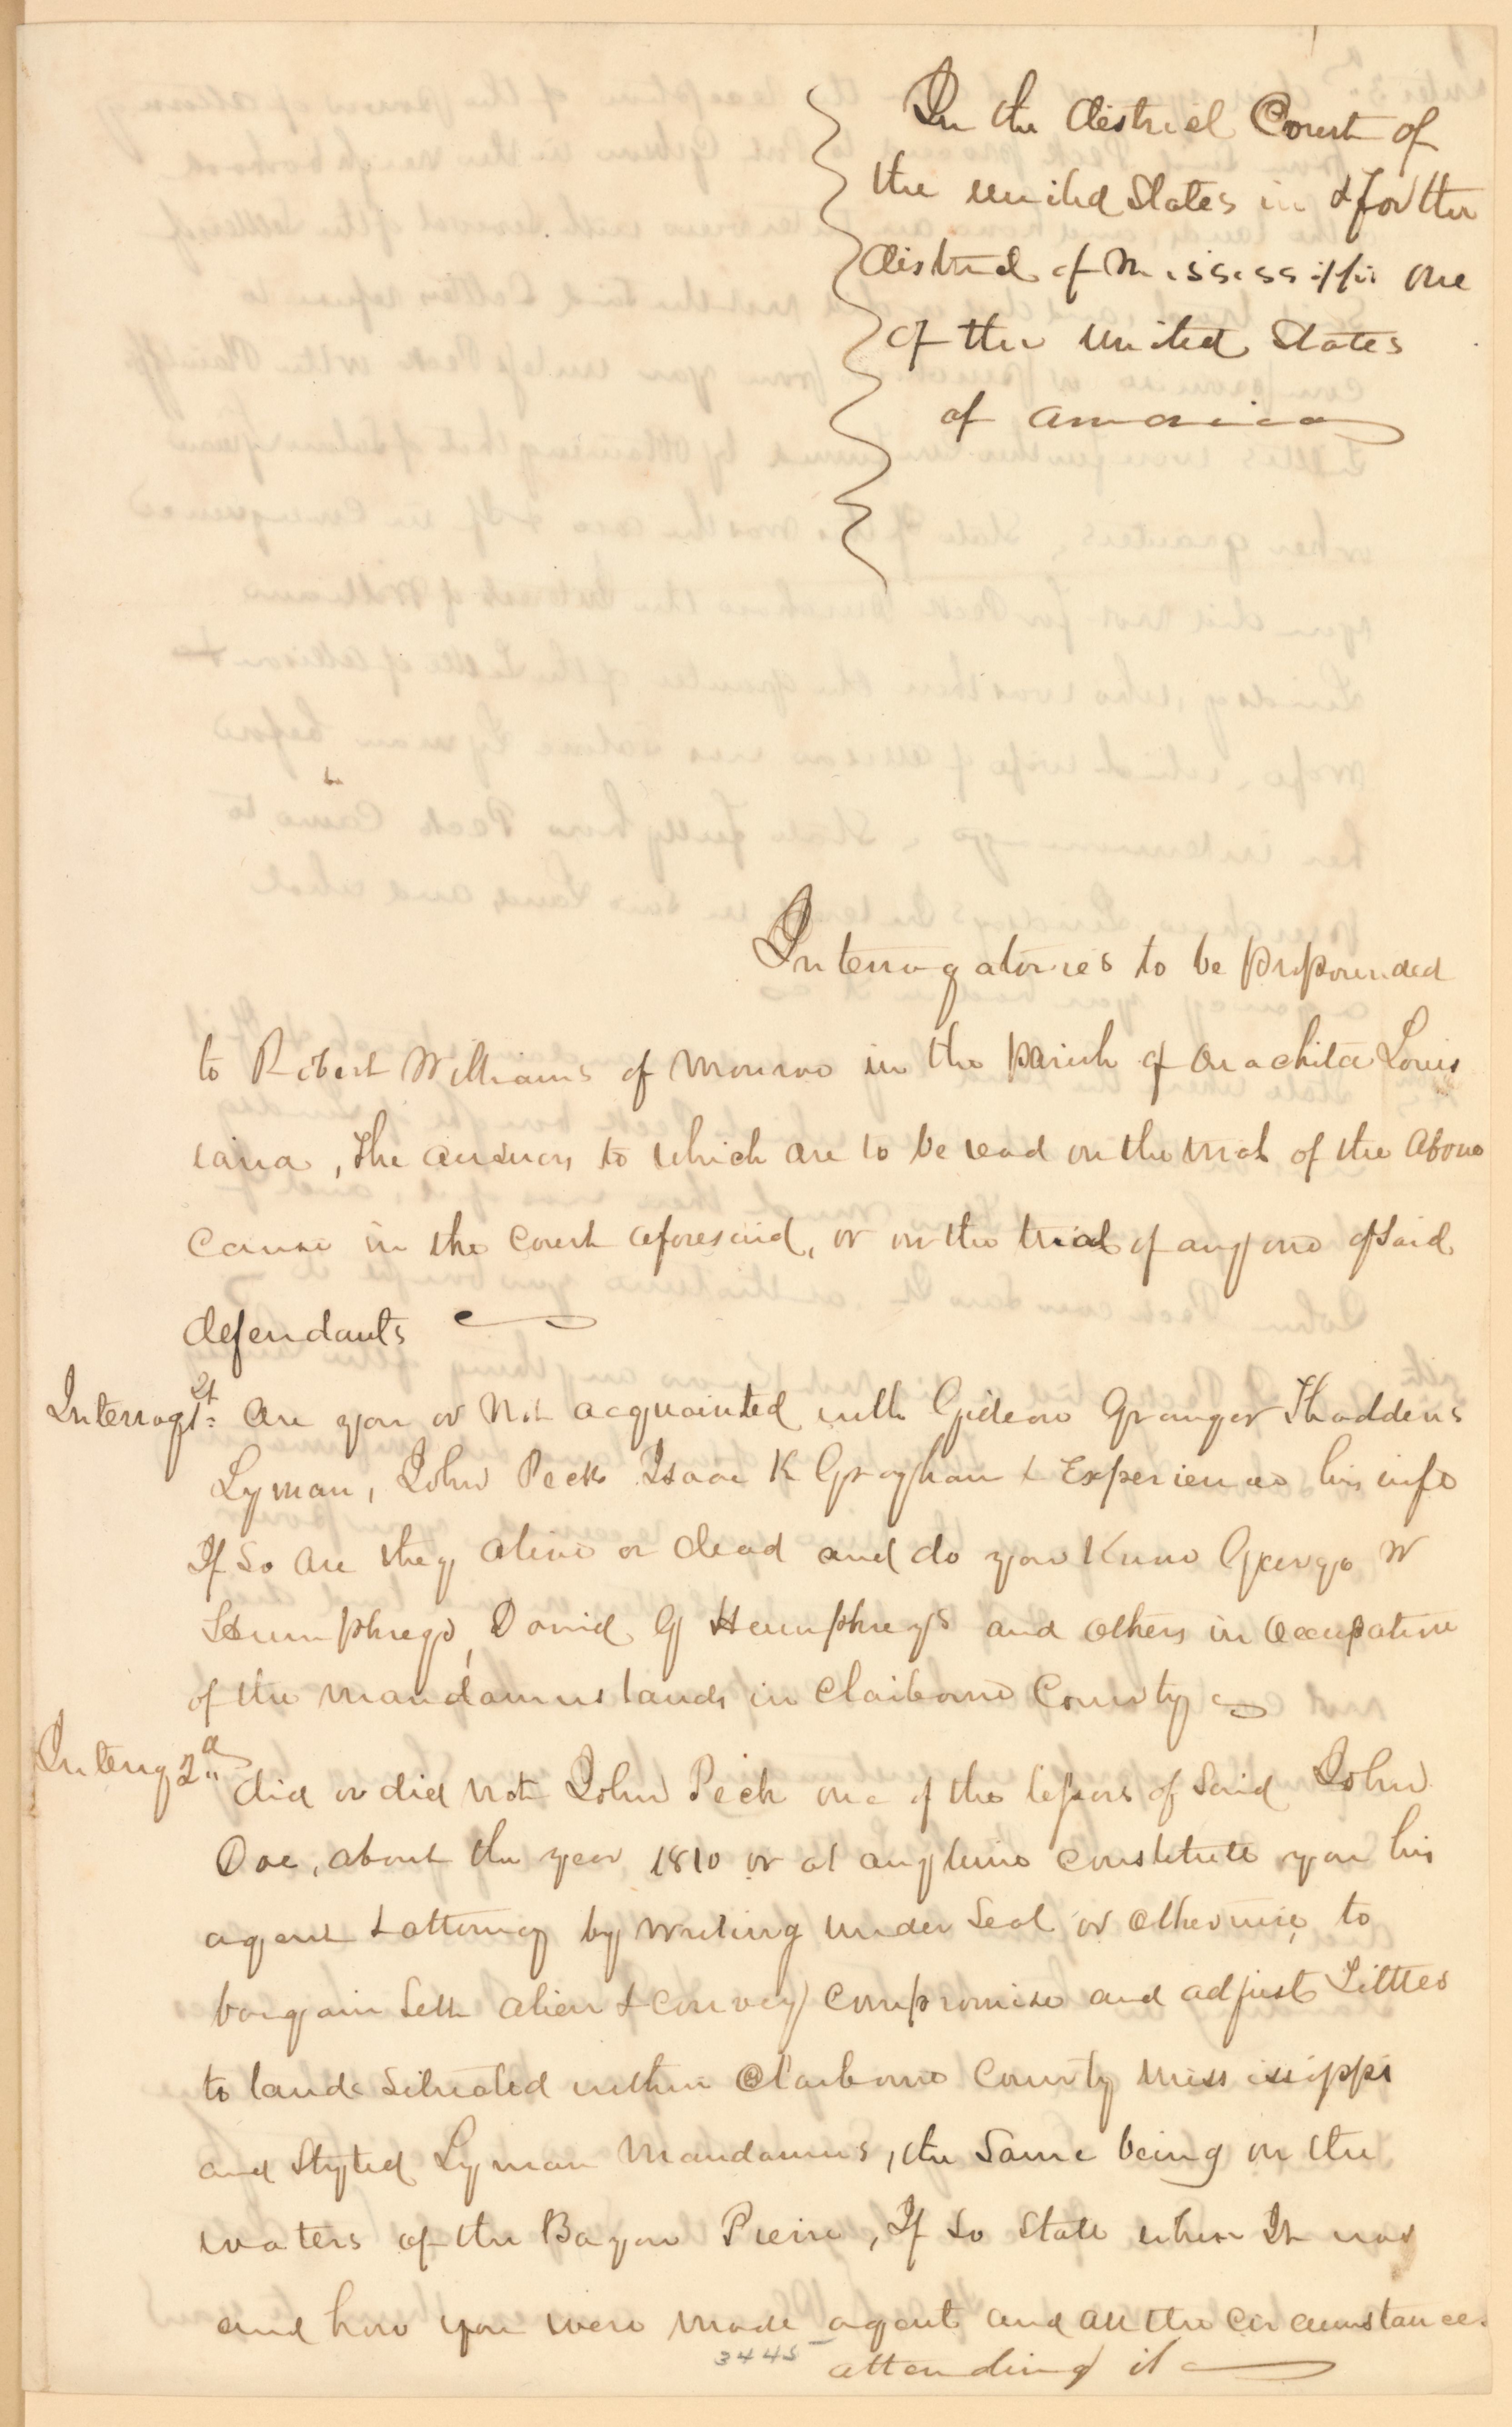 In the district Court of
the united States in & for the
district of Mississippi one
of the united States
of america
Interrogatories to be propounded
to Robert Williams of Monroe in the parish of Ouachita Louis
iana, the answers to which are to be read on the trial of the above
cause in the court aforesaid, or on the trial of any one of said
defendants
Interrog 1st: are you or not acquainted with Gideon Granger Thaddeus
Lyman, John Peck Isaac K Graghan & Experience his wife
If so are they alive or dead and do you know George W
Humphreys, David G Humphreys and others in occupation
of the mandamus lands in Claiborne County
Interrog 2d did or did not John Peck one of the lessors of said John
Doe, about the year 1810 or at any time constitute you his
agent & attorney by writing under seal or otherwise, to
bargain sell alien & convey compromise and adjust Titles
to lands situated within Claiborne County Mississippi
and styled Lyman Mandamus, the same being on the
waters of the Bayou Pierre, If so state when It was
and how you were made agent and all the circumstances
3445 attending it